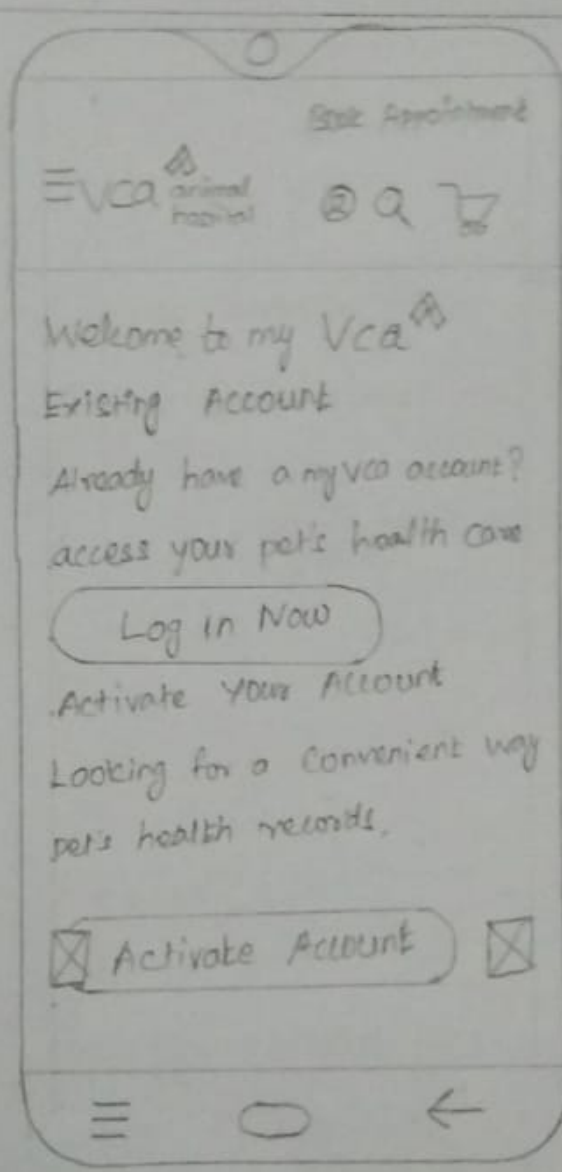 Book Appointment
vca animal
hospital
Welcome to my Vca
Existing Account
Already have a my vca account?
access your pet's health care
Log in Now
Activate Your Account
Looking for a Convenient way
pet's health records.
Activate Account